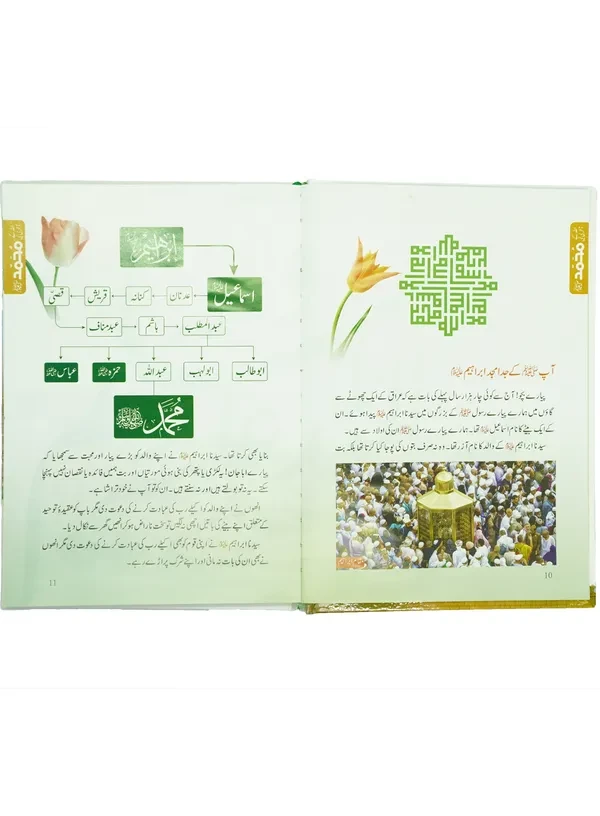 محمد
آپ ﷺ کے جد امجد ابراہیم علیہ السلام
پیارے بچو! آج سے کوئی چار ہزار سال پہلے کی بات ہے کہ عراق کے ایک چھوٹے سے
گاؤں میں ہمارے پیارے رسول ﷺ کے بزرگوں میں سیدنا ابراہیم علیہ السلام پیدا ہوئے۔ ان
کے ایک بیٹے کا نام اسماعیل علیہ السلام تھا۔ ہمارے پیارے رسول ﷺ ان کی اولاد سے ہیں۔
سیدنا ابراہیم علیہ السلام کے والد کا نام آزر تھا۔ وہ نہ صرف بتوں کی پوجا کیا کرتا تھا بلکہ بت
10
محمد
ابراهيم
اسماعیل
عدنان
کنانہ
قریش
قصیّ
عبدالمطلب
ہاشم
عبد مناف
ابو طالب
ابو لہب
عبداللہ
حمزہ
عباس
محمد ﷺ
بنایا بھی کرتا تھا۔ سیدنا ابراہیم علیہ السلام نے اپنے والد کو بڑے پیار اور محبت سے سمجھایا کہ
پیارے ابا جان! یہ لکڑی یا پتھر کی بنی ہوئی مورتیاں اور بت ہمیں فائدہ یا نقصان نہیں پہنچا
سکتے۔ یہ نہ تو بولتے ہیں اور نہ سنتے ہیں۔ ان کو تو آپ نے خود تراشا ہے۔
انھوں نے اپنے والد کو اپنے رب کی عبادت کرنے کی دعوت دی مگر باپ کو عقیدۂ توحید
کے متعلق اپنے بیٹے کی باتیں اچھی نہ لگیں تو سخت ناراض ہو کر انھیں گھر سے نکال دیا۔
سیدنا ابراہیم علیہ السلام نے اپنی قوم کو بھی اکیلے رب کی عبادت کرنے کی دعوت دی مگر انھوں
نے بھی ان کی بات نہ مانی اور اپنے شرک پر اڑے رہے۔
11